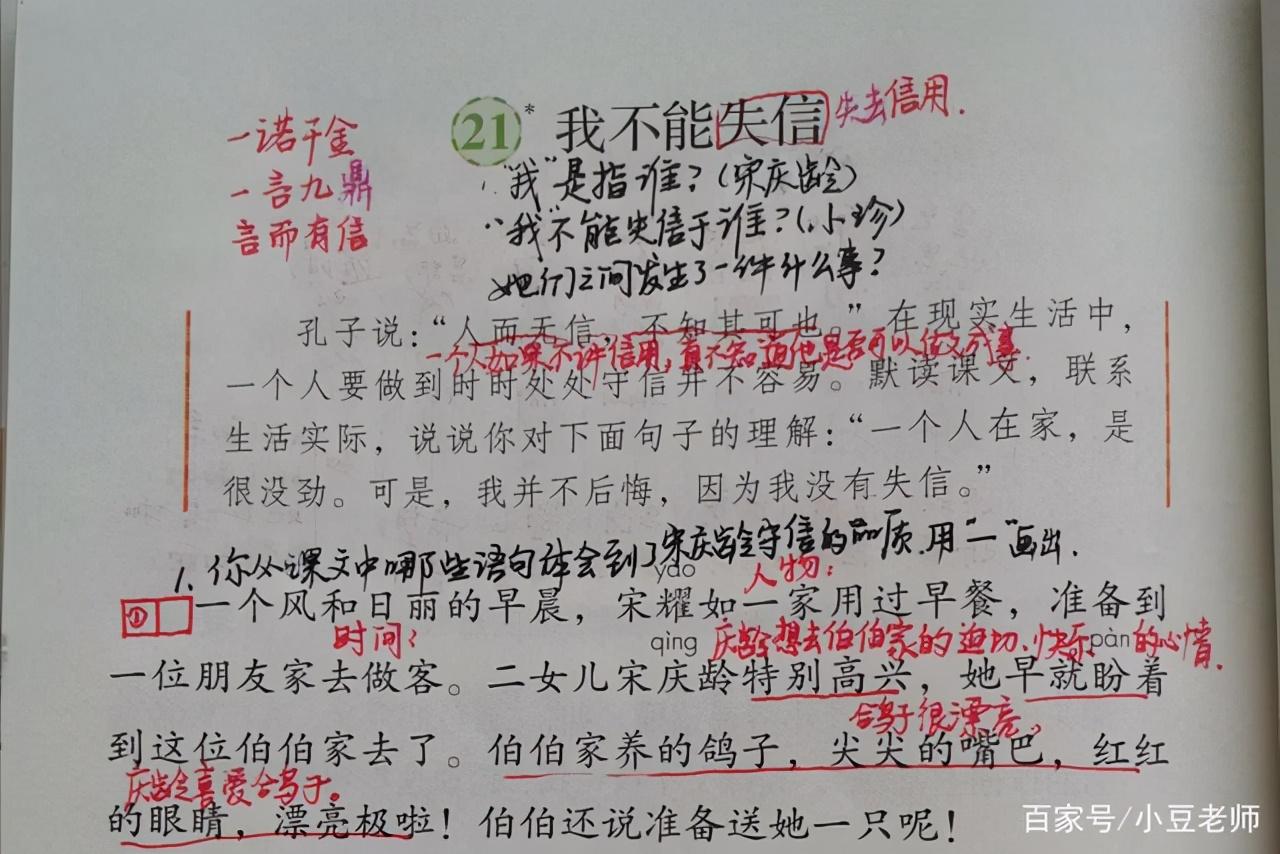 21* 我不能失信 失去信用.
一诺千金
一言九鼎
言而有信
“我”是指谁？（宋庆龄）
“我”不能失信于谁？（小珍）
她们之间发生了一件什么事？
孔子说：“人而无信，不知其可也。”在现实生活中，
一个人如果不讲信用，真不知道他是否可以做又成事.
一个人要做到时时处处守信并不容易。默读课文，联系
生活实际，说说你对下面句子的理解：“一个人在家，是
很没劲。可是，我并不后悔，因为我没有失信。”
1. 你从课文中哪些语句体会到了宋庆龄守信的品质.用“—”画出.
yào
人物：
① 一个风和日丽的早晨，宋耀如一家用过早餐，准备到
时间：
qìng 庆龄想去伯伯家的迫切、快乐 pàn 的心情.
一位朋友家去做客。二女儿宋庆龄特别高兴，她早就盼着
鸽子很漂亮。
到这位伯伯家去了。伯伯家养的鸽子，尖尖的嘴巴，红红
庆龄喜爱鸽子。
的眼睛，漂亮极啦！伯伯还说准备送她一只呢！
百家号/小豆老师